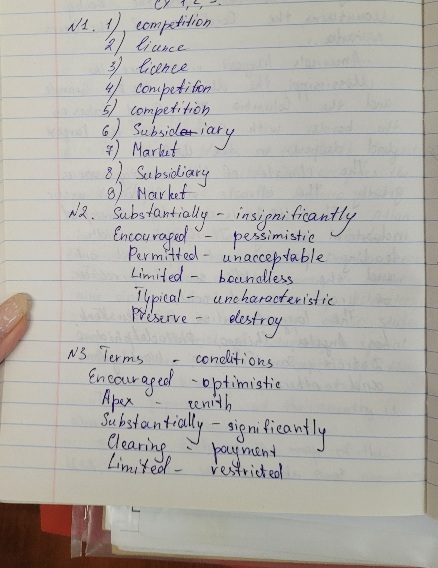 N1. 1) competition
2) liance
3) licence
4) competition
5) competition
6) Subsidiary
7) Market
8) Subsidiary
9) Market
N2. Substantially - insignificantly
Encouraged - pessimistic
Permitted - unacceptable
Limited - boundless
Typical - uncharacteristic
Preserve - destroy
N3 Terms - conditions
Encouraged - optimistic
Apex - zenith
Substantially - significantly
Clearing - payment
Limited - restricted